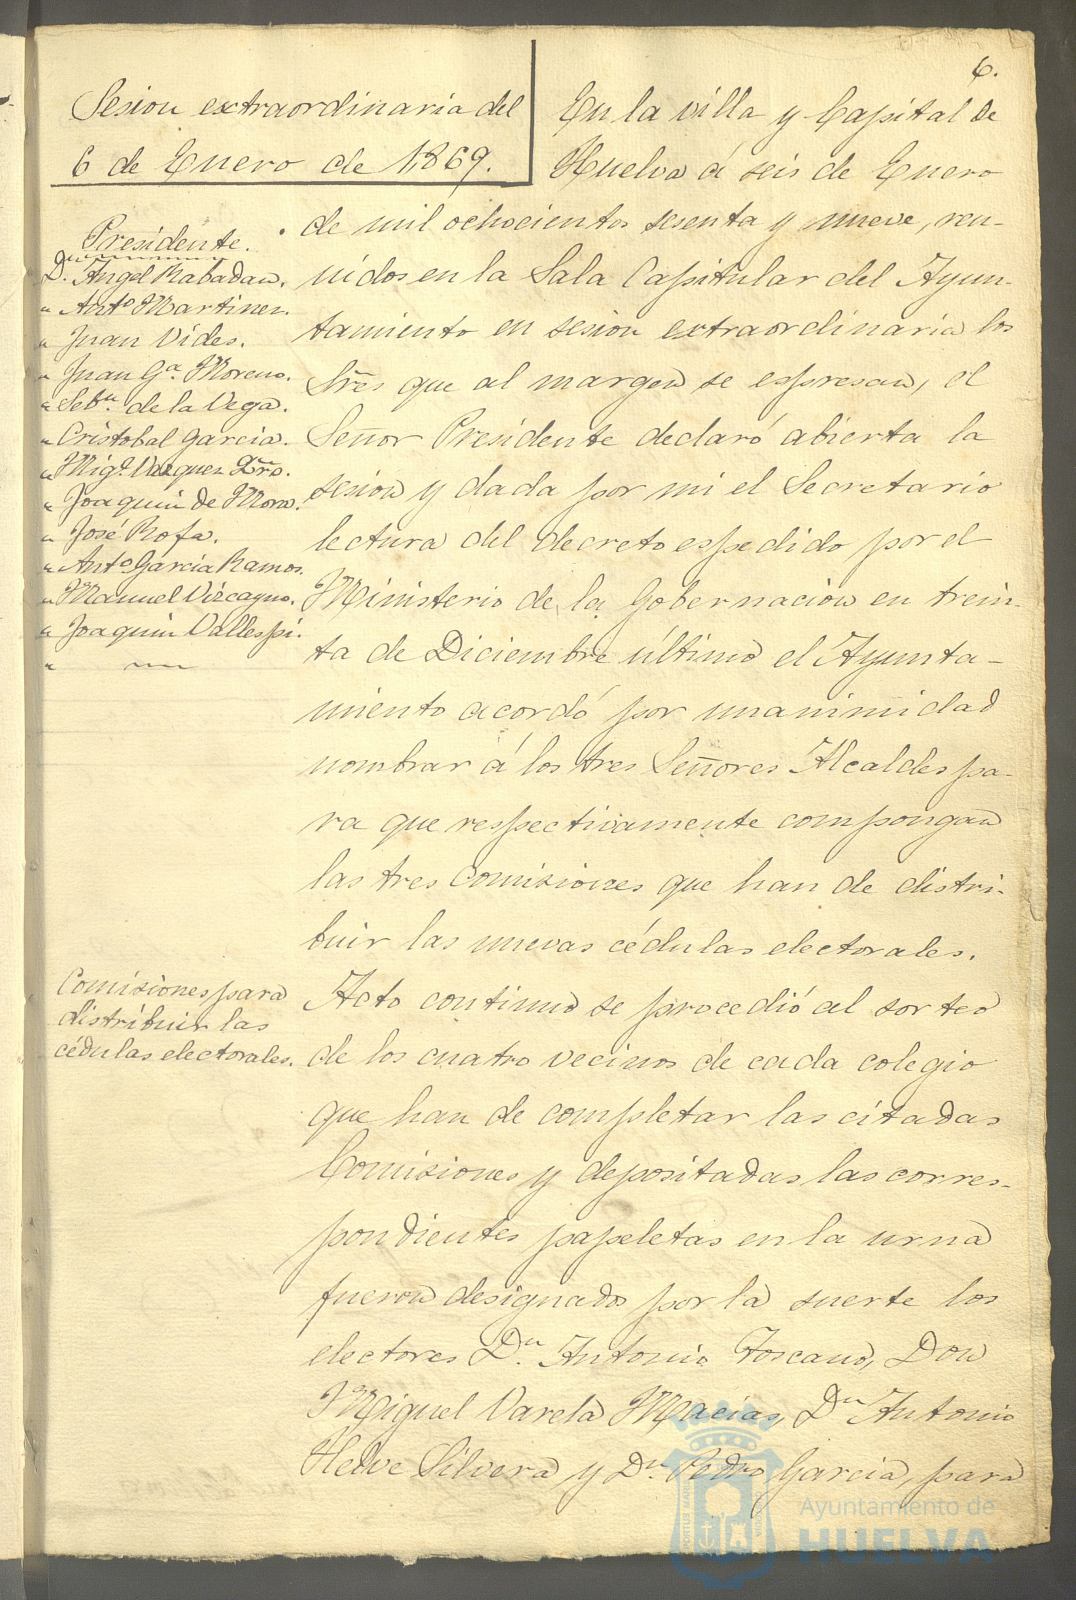 6.
Sesion extraordinaria del
6 de Enero de 1869.
Presidente.
Dn. Angel Rabadan.
" Anto Martinez.
" Juan Vides.
" Juan Ga. Moreno.
" Sebn. de la Vega.
" Cristobal Garcia.
" Migl. Vazquez
" Joaquin de Mora.
" José Rofa.
" Anto Garcia Ramos.
" Manuel Vizcayno.
" Joaquin Vallespi.
"
En la villa y Capital de
Huelva á seis de Enero
de mil ochocientos sesenta y nueve, reu-
nidos en la Sala Capitular del Ayun-
tamiento en sesion extraordinaria los
Sres que al margen se espresan, el
Señor Presidente declaró abierta la
sesion y dada por mi el Secretario
lectura del decreto espedido por el
Ministerio de la Gobernacion en trein-
ta de Diciembre último el Ayunta-
miento acordó por unanimidad
nombrar á los tres Señores Alcaldes pa-
ra que respectivamente compongan
las tres comisiones que han de distri-
buir las nuevas cédulas electorales.
Comisiones para
distribuir las
cédulas electorales.
Acto continuo se procedió al sorteo
de los cuatro vecinos de cada colegio
que han de completar las citadas
Comisiones y depositadas las corres-
pondientes papeletas en la urna
fueron designados por la suerte los
electores Dn. Antonio Toscano, Don
Miguel Varela Macias, Dn Antonio
Helve Silvera y Dn. Pedro Garcia, para
Ayuntamiento de
HUELVA